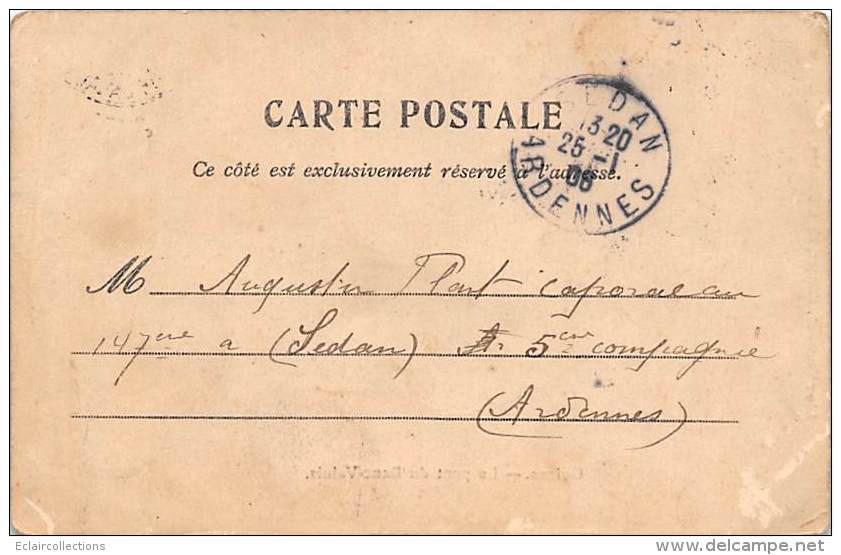 CARTE POSTALE
Ce côté est exclusivement réservé à l'adresse.
SEDAN
13-20
25-1
06
ARDENNES
M Augustin Plart Caporal au
147ème a (Sedan) 5em compagnie
(Ardennes)
Le pont du
Eclaircollections
www.delcampe.net